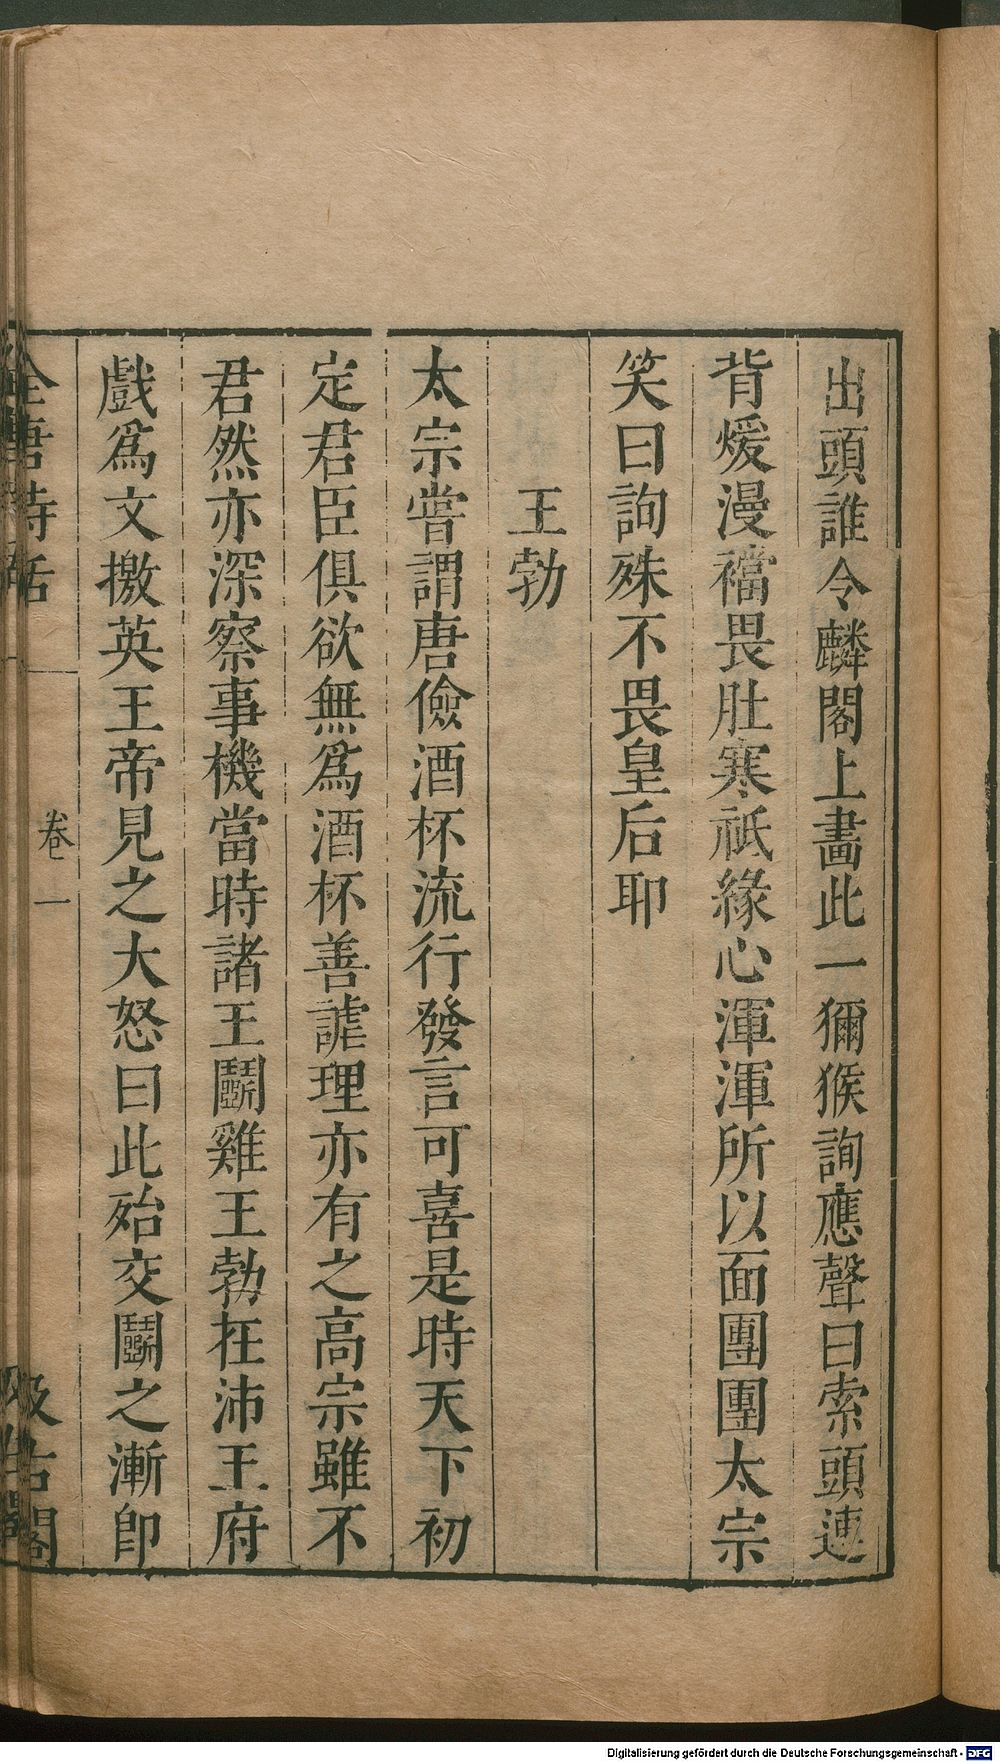 出頭誰令麟閣上畫此一獼猴詢應聲曰索頭連
背煖漫襠畏肚寒祇緣心渾渾所以面團團太宗
笑曰詢殊不畏皇后耶
王勃
太宗嘗謂唐儉酒杯流行發言可喜是時天下初
定君臣俱欲無爲酒杯善謔理亦有之高宗雖不
君然亦深察事機當時諸王鬭雞王勃在沛王府
戲爲文檄英王帝見之大怒曰此殆交鬭之漸卽
全唐詩話
卷一
汲古閣
Digitalisierung gefördert durch die Deutsche Forschungsgemeinschaft - DFG